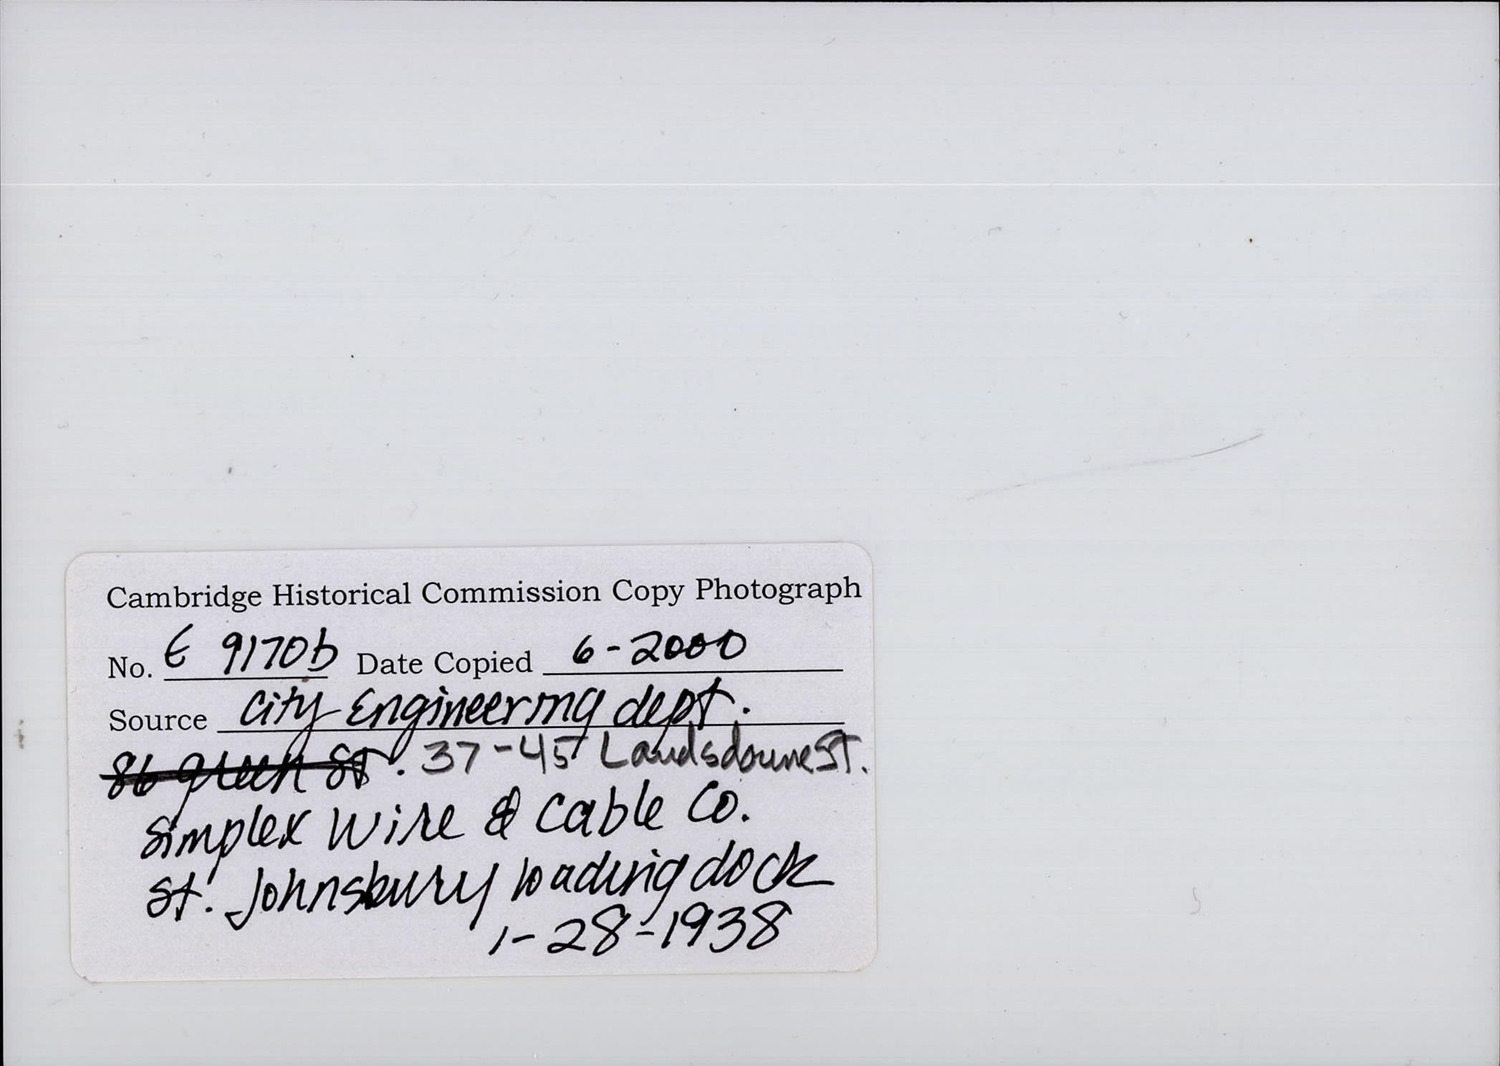 Cambridge Historical Commission Copy Photograph
No. E 9170b Date Copied 6-2000
Source City Engineering dept.
86 green St. 37-45 Landsdowne St.
Simplex Wire & Cable Co.
St. Johnsbury loading dock
1-28-1938